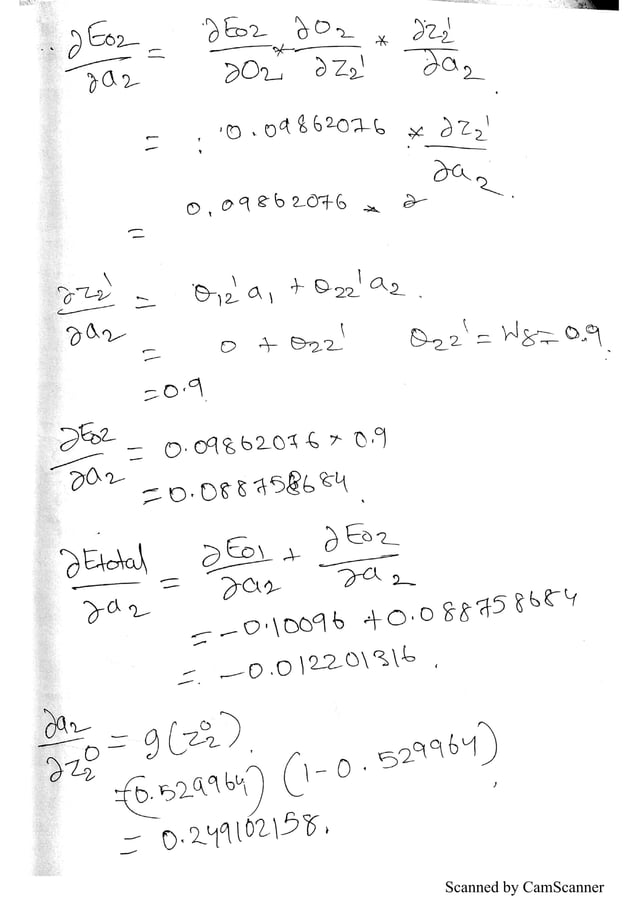 ∂Eo2/∂a2 = ∂Eo2/∂O2 * ∂O2/∂Z2' * ∂Z2'/∂a2
= : 0.09862076 * ∂Z2'/∂a2.
= 0.09862076 * ∂
∂Z2'/∂a2 = θ12'a1 + θ22'a2.
= 0 + θ22' θ22' = W8 = 0.9
= 0.9
∂Eo2/∂a2 = 0.09862076 * 0.9
= 0.088758684.
∂Etotal/∂a2 = ∂Eo1/∂a2 + ∂Eo2/∂a2
= -0.10096 + 0.088758684
= -0.012201316.
∂a2/∂Z2^0 = g(Z2^0).
= (0.529964) (1-0.529964),
= 0.249102158.
Scanned by CamScanner